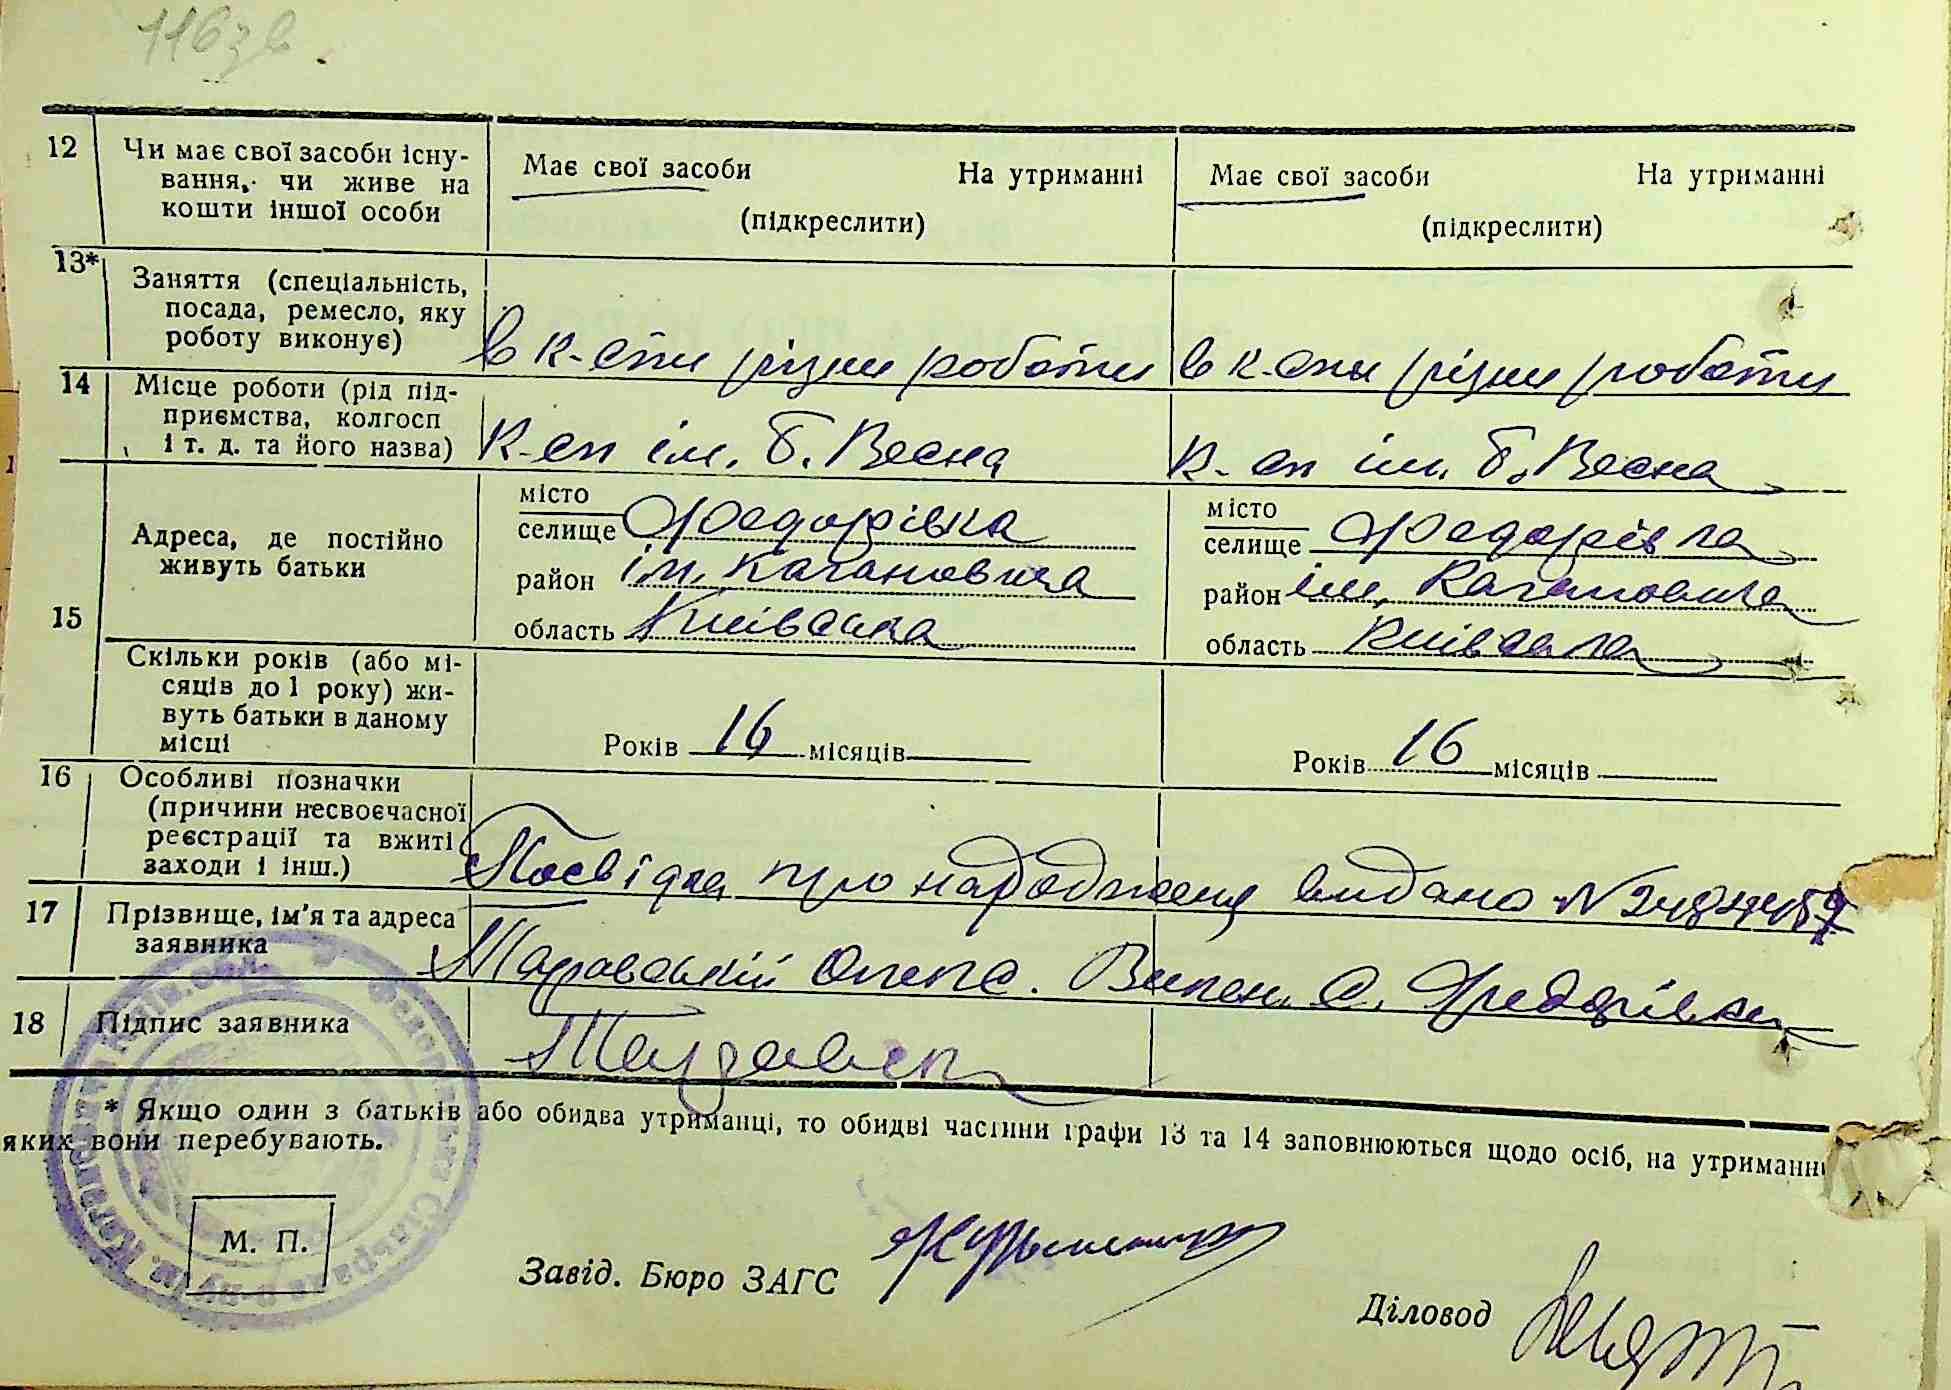 12
Чи має свої засоби існу-
вання, чи живе на
кошти іншої особи
Має свої засоби На утриманні
(підкреслити)
Має свої засоби На утриманні
(підкреслити)
13*
Заняття (спеціальність,
посада, ремесло, яку
роботу виконує)
в к-спи різни роботи
в к-спи різни роботи
14
Місце роботи (рід під-
приємства, колгосп
і т. д. та його назва)
К-сп ім. Б. Весна
К-сп ім. Б. Весна
15
Адреса, де постійно
живуть батьки
місто
селище Федорівка
район ім. Кагановича
область Київська
місто
селище Федорівка
район ім. Кагановича
область Київська
Скільки років (або мі-
сяців до 1 року) жи-
вуть батьки в даному
місці
Років 16 місяців
Років 16 місяців
16
Особливі позначки
(причини несвоєчасної
реєстрації та вжиті
заходи і інш.)
Посвідка про народження видано №
17
Прізвище, ім'я та адреса
заявника
с. Федорівка
18
Підпис заявника
* Якщо один з батьків або обидва утриманці, то обидві частини графи 13 та 14 заповнюються щодо осіб, на утриманні
яких вони перебувають.
М. П.
Завід. Бюро ЗАГС
Діловод